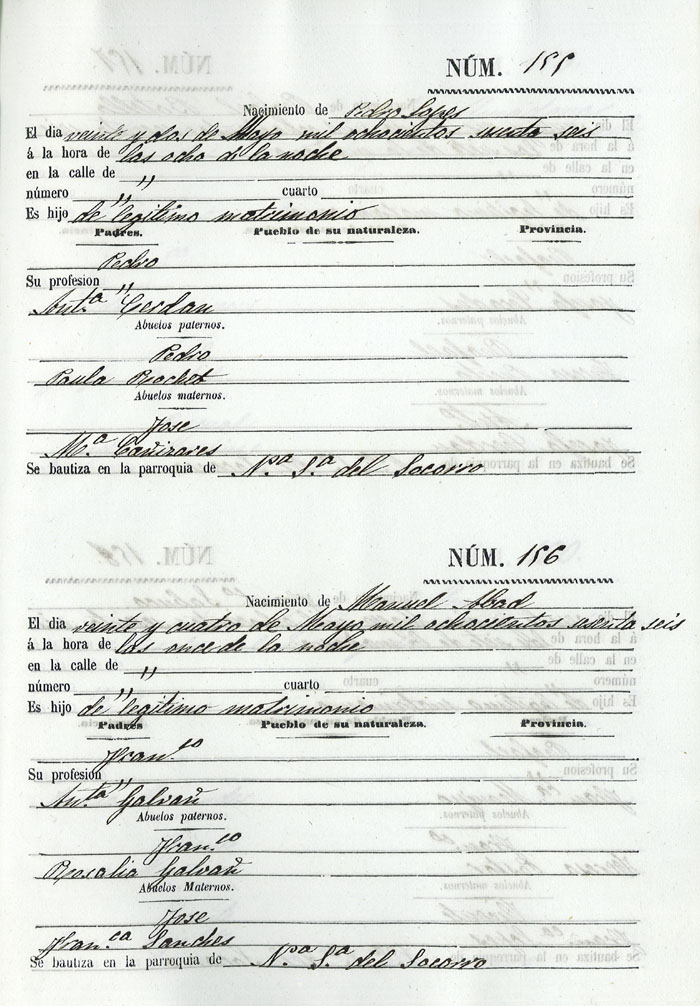 NÚM. 155
Nacimiento de Pedro Lopes
El dia veinte y dos de Mayo mil ochocientos secenta seis
á la hora de las ocho de la noche
en la calle de "
número " cuarto
Es hijo de legitimo matrimonio
Padres. Pueblo de su naturaleza. Provincia.
Pedro
Su profesion "
Ant.ª Cerdan
Abuelos paternos.
Pedro
Paula Rochet
Abuelos maternos.
Jose
M.ª Cañizares
Se bautiza en la parroquia de N.ª S.ª del Socorro
NÚM. 156
Nacimiento de Manuel Abad
El dia veinte y cuatro de Mayo mil ochocientos secenta seis
á la hora de las once de la noche
en la calle de "
número " cuarto
Es hijo de legitimo matrimonio
Padres Pueblo de su naturaleza. Provincia.
Fran.co
Su profesion "
Ant.ª Galvañ
Abuelos paternos.
Fran.co
Rosalia Galvañ
Abuelos Maternos.
Jose
Fran.ca Sanches
Se bautiza en la parroquia de N.ª S.ª del Socorro